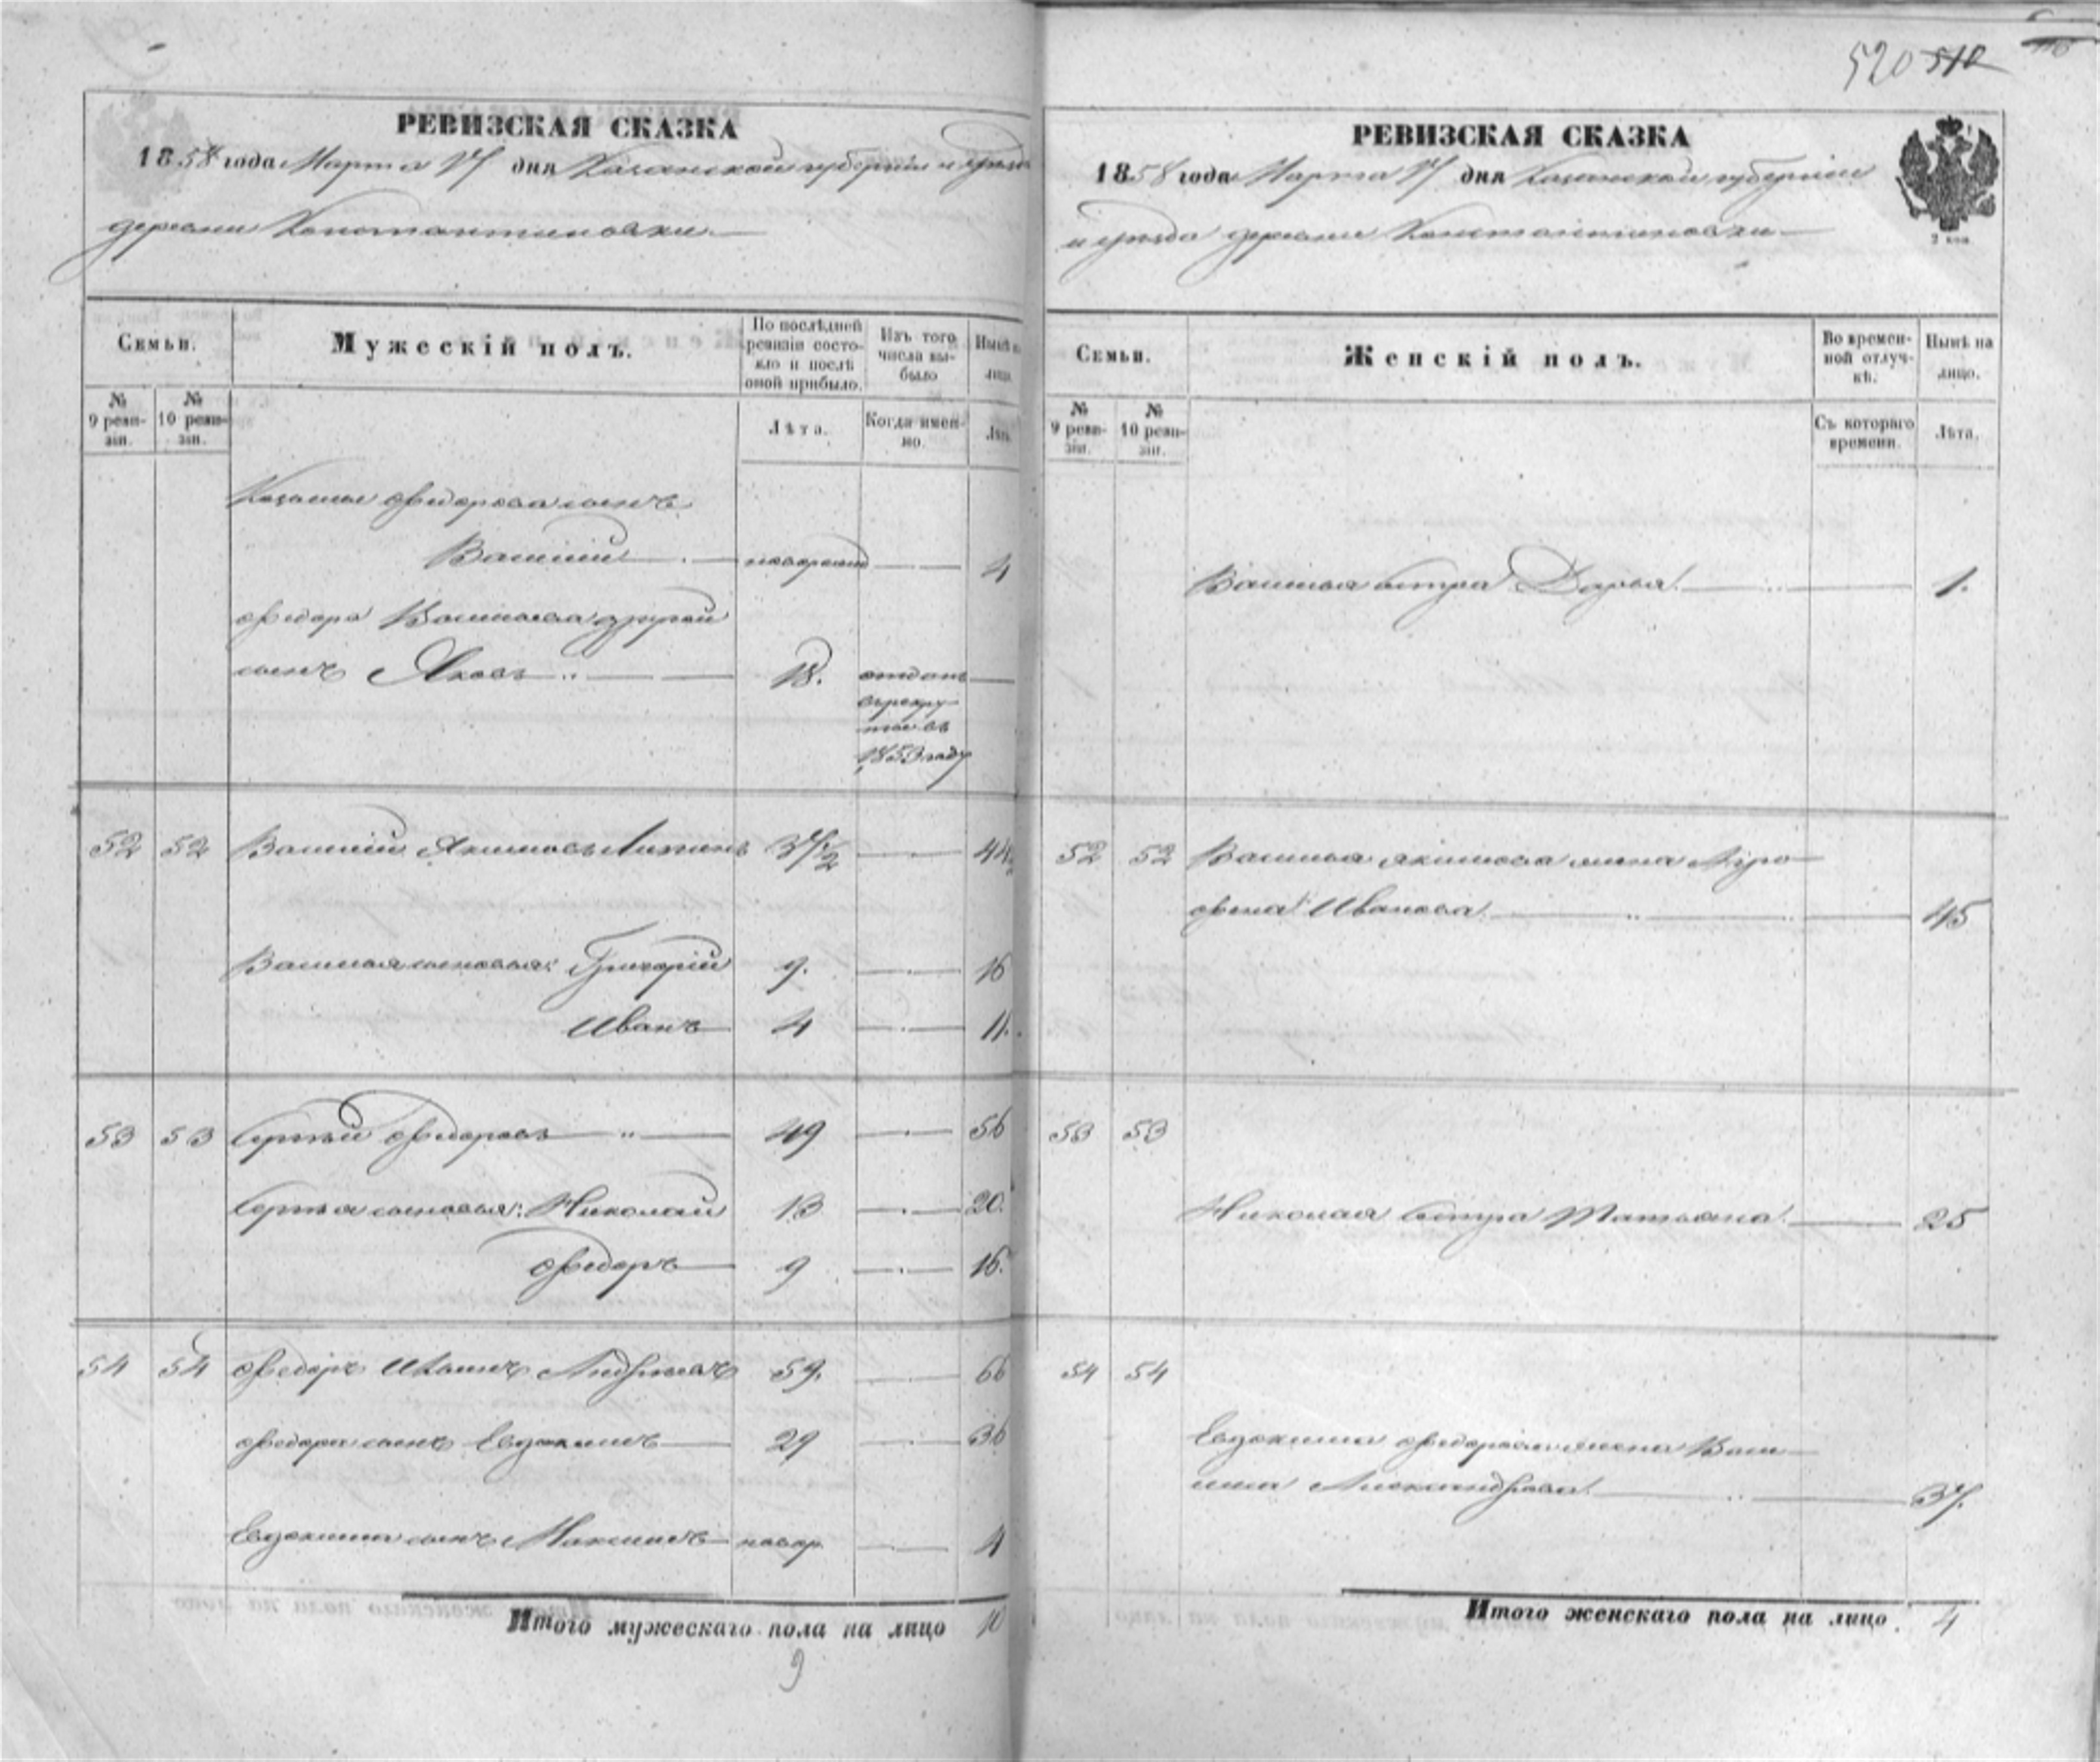 520 510
РЕВИЗСКАЯ СКАЗКА
1858 года Марта 17 дня Казанской губернии и уезда
деревни Константиновки
Семьи.
Мужескій полъ.
По послѣдней ревизіи состояло и послѣ оной прибыло.
Изъ того числа выбыло
Нынѣ на лицо.
№ 9 ревизіи.
№ 10 ревизіи.
Лѣта.
Когда именно.
Лѣта.
Козьмы Федорова сынъ
Василій новорожд 4
Федора Васильева другой
сынъ Яковъ 18. отданъ
въ рекру-
ты въ
1853 году
52 52 Василій Якимовъ 37 1/2 44
Василья сыновья: Григорій 9. 16
Иванъ 4 11.
53 53 Сергѣй Федоровъ 49 56
Сергѣя сыновья: Николай 13 20.
Федоръ 9 16.
54 54 Федоръ Андреевъ 59. 66
Федора сынъ Евдокимъ 29 36
Евдокима сынъ Максимъ новор. 4
Итого мужескаго пола на лицо 10
9
РЕВИЗСКАЯ СКАЗКА
1858 года Марта 17 дня Казанской губерніи
и уезда деревни Константиновки
2 коп.
Семьи.
Женскій полъ.
Во временной отлучкѣ.
Нынѣ на лицо.
№ 9 ревизіи.
№ 10 ревизіи.
Съ котораго времени.
Лѣта.
Василья сестра Дарья. 1.
52 52 Василья Якимова жена Агро-
фена Иванова 45
53 53
Николая сестра Татьяна. 25
54 54
Евдокима Федорова жена Васи-
лиса Александрова. 37.
Итого женскаго пола на лицо. 4